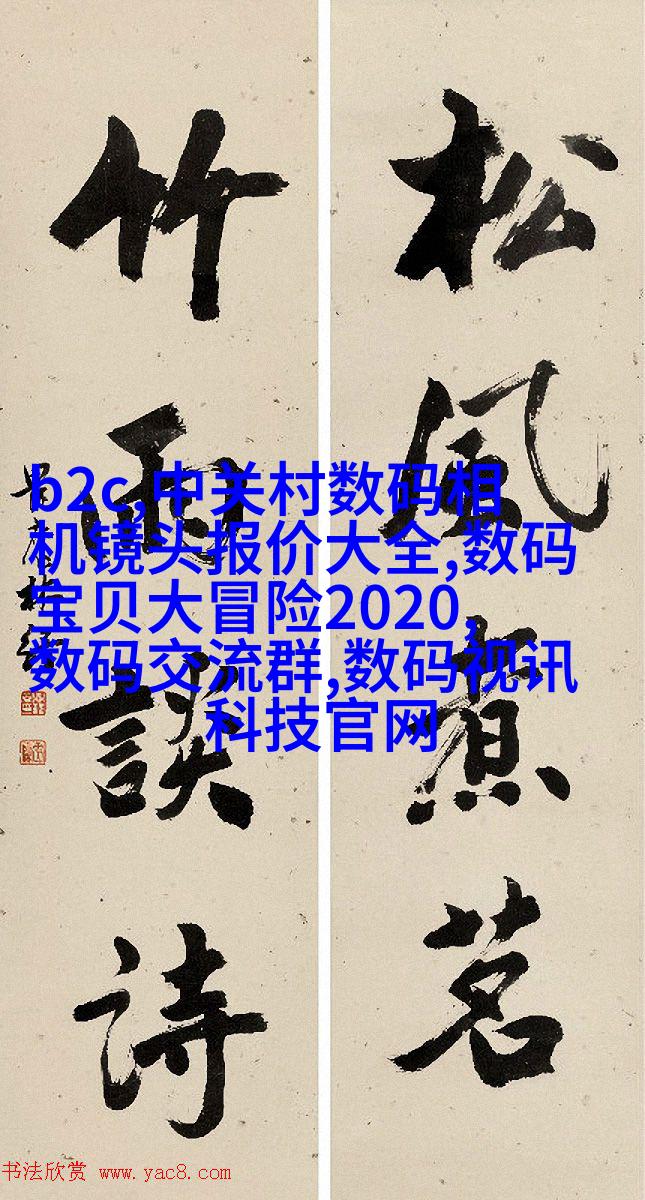 松風煮茗
竹雨談詩
b2c,中关村数码相
机镜头报价大全,数码
宝贝大冒险2020,
数码交流群,数码视讯
科技官网
书法欣赏 www.yac8.com